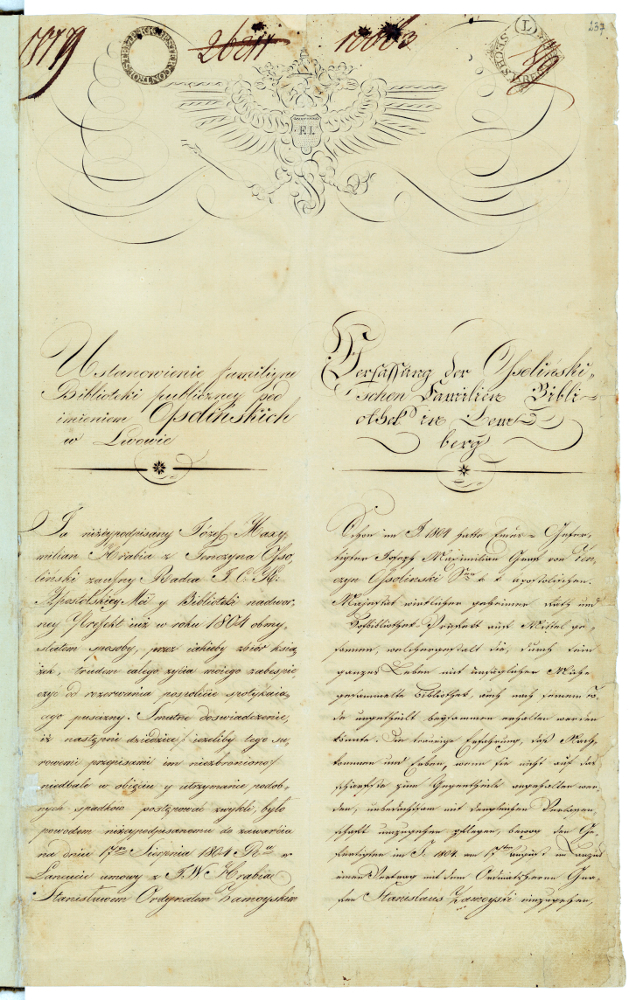 237
F. I.
Ustanowienie familijne
Biblioteki publiczney pod
imieniem Ossolińskich
w Lwowie
Verfassung der Ossolinski-
schen Familien Bibli-
othek in Lem
berg
Ja niżeypodpisany Józef Maxy
milian Hrabia z Tenczyna Osso
liński zaufny Radca J. C. K.
Apostolskiey Mci y Biblioteki nadwor
ney Prefekt już w roku 1804 obmy,
śliłem sposoby, przez jakieby zbiór książ
żek, trudem całego życia mojego zabezpie
czyć do rozerwania pośrednie spotykaią,
cego puścizny. Smutne doświadczenie,
iż następni dziedzice / jeżeliby tego su,
rowemi przepisami im niezbroniono /
niedbale w obięciu y utrzymaniu podob,
nych spadków postępować zwykli, było
powodem niżeypodpisanemu do zawarcia
na dniu 17m Sierpnia 1804 Ru w
Łańcucie umowy z J. W. Hrabią
Stanisławem Ordynatem Zamoyskim
Schon im J. 1804 hatte hier Gefer-
tigter Joseph Maximilian Graf von Ten
czyn Ossolinski Sr k k apostolischen
Majestät wirklicher geheimer Rath und
Hofbibliothek Präfekt auf Mittel ge,
sonnen, welchergestalt die, durch sein
ganzes Leben mit unsäglicher Mühe
gesammelte Bibliothek, auch nach seinem To,
de ungetheilt beysammen erhalten werden
könnte. Die traurige Erfahrung, daß Nach,
kommen und Erben, wenn sie nicht auf das
schärfste zum Gegentheile angehalten wer,
den, unbedachtsam mit dergleichen Verlassen
schaft umzugehen pflegen, bewog den Ge,
fertigten im J. 1804 am 17ten August in Lanzut
einen Vertrag mit dem Ordinatsherrn Gra,
fen Stanislaus Zamoyski einzugehen,